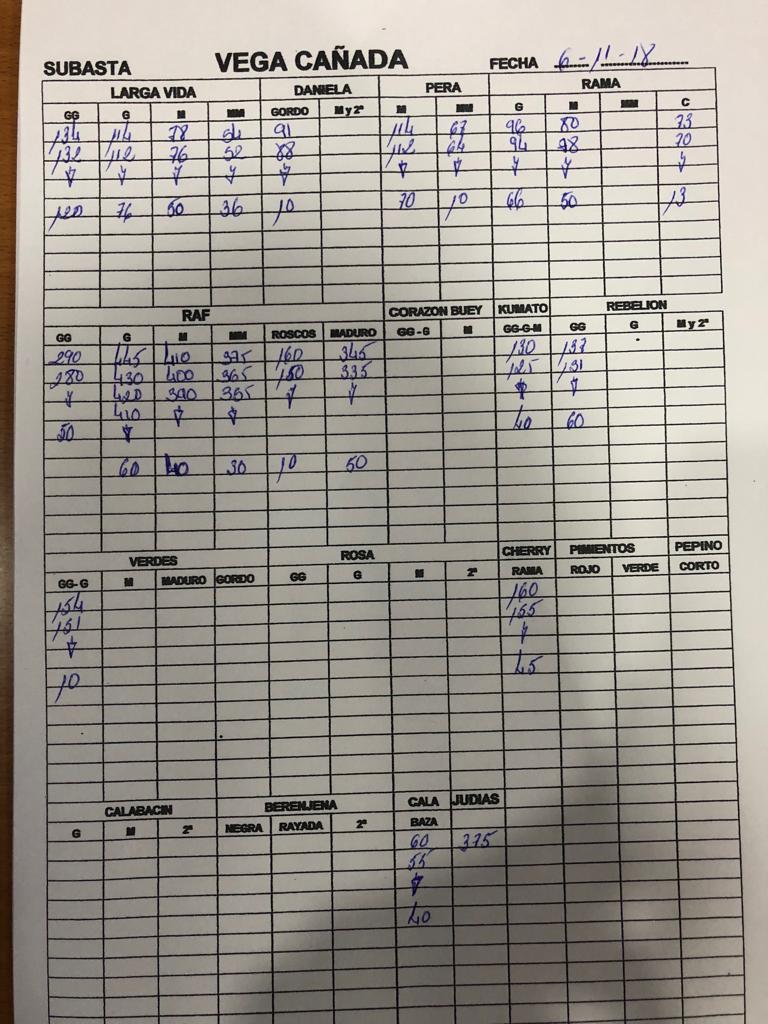 SUBASTA VEGA CAÑADA FECHA 6-11-18
LARGA VIDA DANIELA PERA RAMA
GG G M MM GORDO M y 2ª M MM G M MM C
134 114 78 54 91 114 67 96 80 73
132 112 76 52 88 112 64 94 78 70
120 76 50 36 10 70 10 66 50 13
RAF CORAZON BUEY KUMATO REBELION
GG G M MM ROSCOS MADURO GG-G M GG-G-M GG G M y 2ª
290 445 410 375 160 345 130 137
280 430 400 365 150 335 125 131
420 390 355
410 40 60
50
60 40 30 10 50
VERDES ROSA CHERRY PIMIENTOS PEPINO
GG-G M MADURO GORDO GG G M 2ª RAMA ROJO VERDE CORTO
154 160
151 155
10 45
CALABACIN BERENJENA CALA JUDIAS
G M 2ª NEGRA RAYADA 2ª BAZA
60 375
55
40